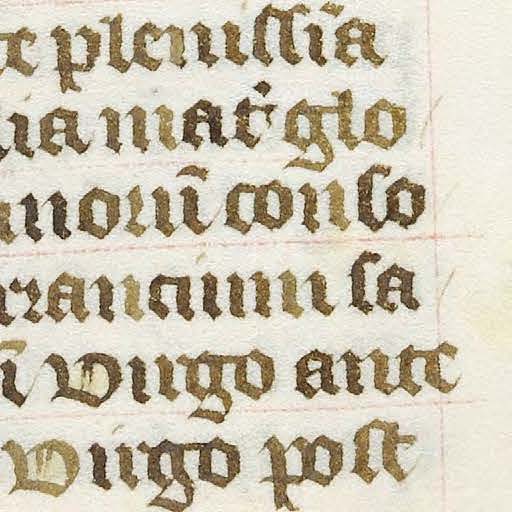 te plenissīa
ria mat᷑ glo
anorū conso
rrancium sa
ī Virgo ante
Virgo post